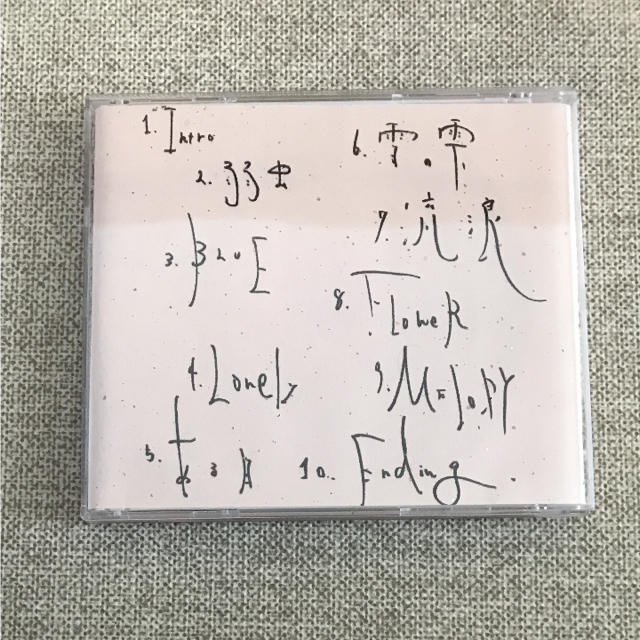 1. Intro
2. 弱虫
3. BLuE
4. Lonely
5. ある日
6. 雪。雫
7. 流浪
8. FLoweR
9. MELODY
10. Ending.